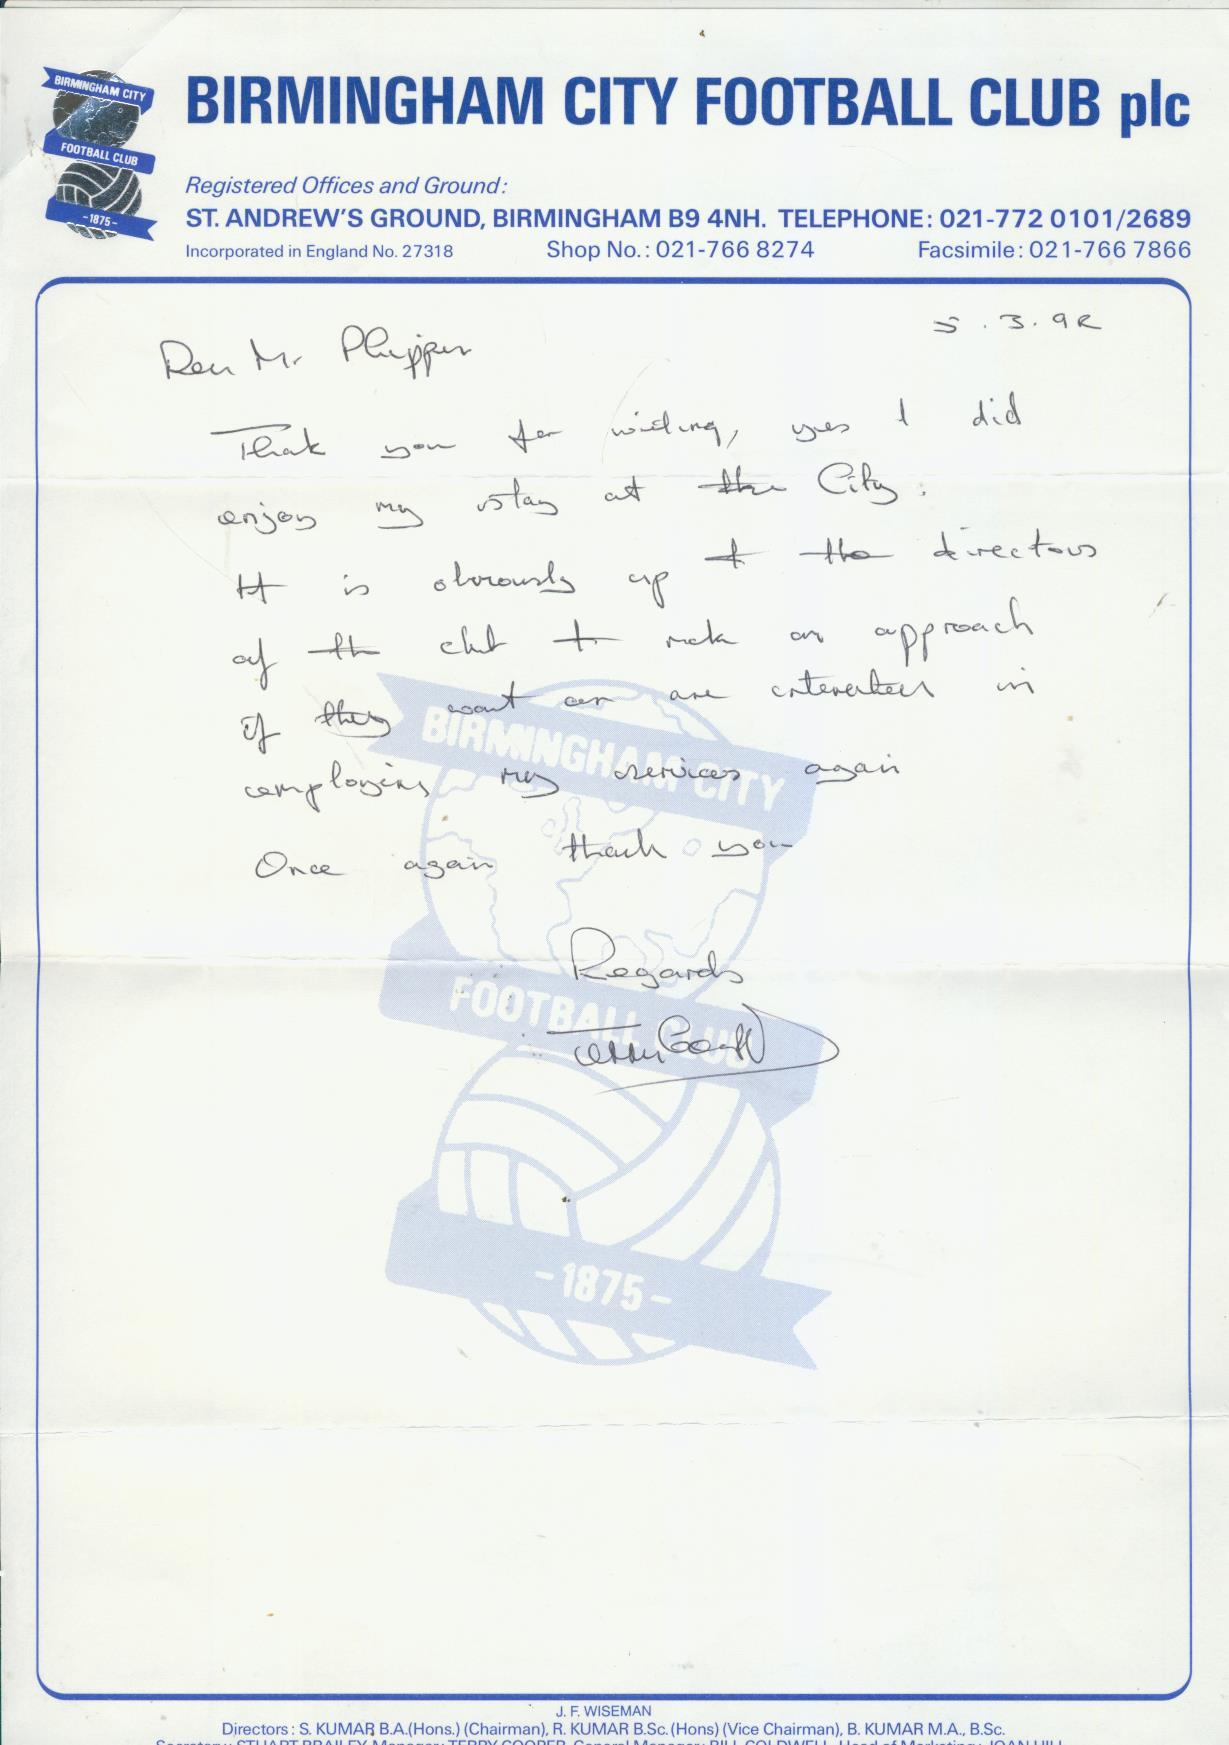 BIRMINGHAM CITY
FOOTBALL CLUB
-1875-
BIRMINGHAM CITY FOOTBALL CLUB plc
Registered Offices and Ground:
ST. ANDREW'S GROUND, BIRMINGHAM B9 4NH. TELEPHONE: 021-772 0101/2689
Incorporated in England No. 27318 Shop No.: 021-766 8274 Facsimile: 021-766 7866
5.3.92
Dear Mr
Thank you for writing, yes I did
enjoy my stay at the City.
It is obviously up to the directors
of the club to make an approach
if they want or are interested in
employing my services again
Once again thank you
Regards
Terry Cooper
BIRMINGHAM CITY
FOOTBALL CLUB
-1875-
J. F. WISEMAN
Directors: S. KUMAR B.A.(Hons.) (Chairman), R. KUMAR B.Sc.(Hons) (Vice Chairman), B. KUMAR M.A., B.Sc.
Secretary: STUART BRAILEY, Manager: TERRY COOPER, General Manager: BILL COLDWELL, Head of Marketing: JOAN HILL